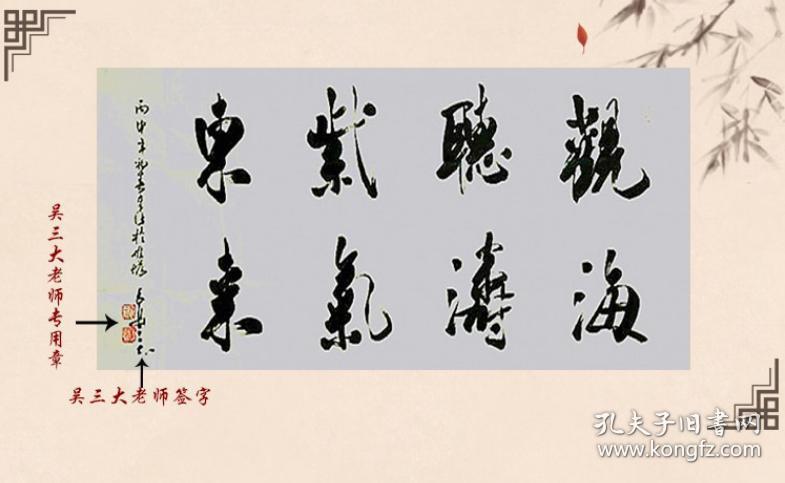 觀海
聽濤
紫氣
東來
丙申年
吴三大老师专用章
吴三大老师签字
孔夫子旧书网
www.kongfz.com